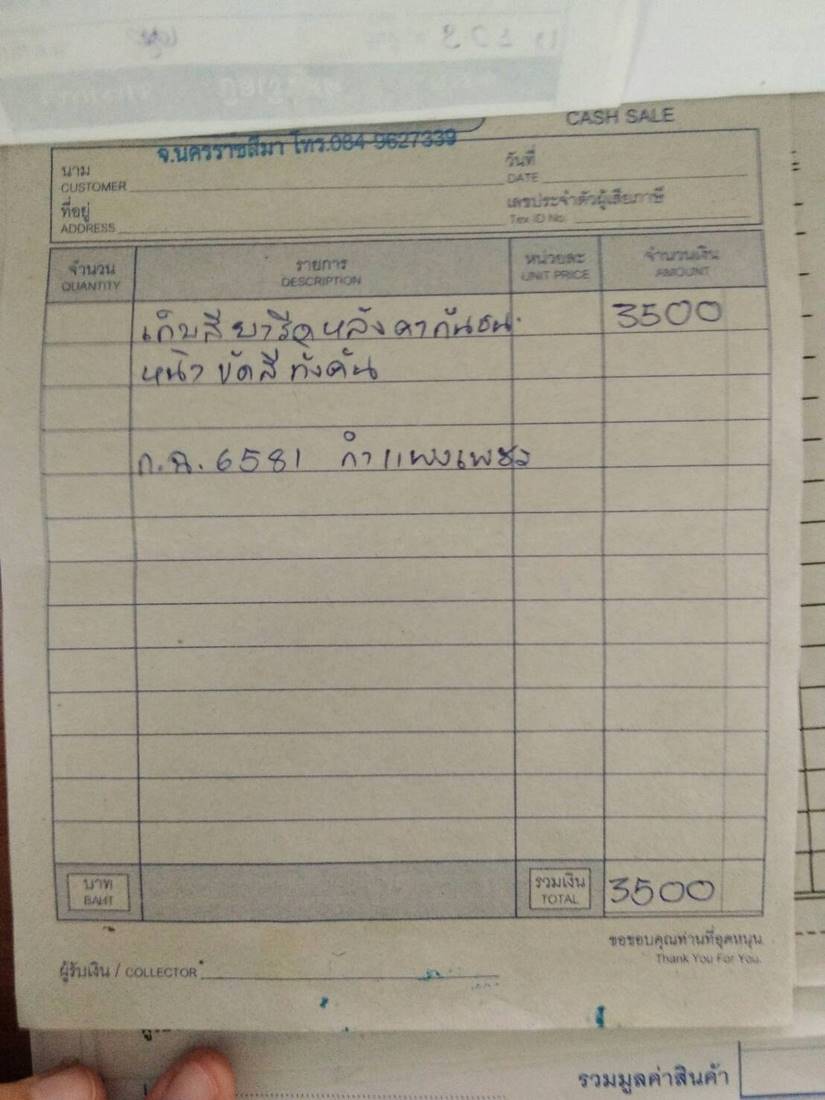 CASH SALE
จ.นครราชสีมา โทร.084-9627339
นาม
CUSTOMER
วันที่
DATE
ที่อยู่
ADDRESS
เลขประจำตัวผู้เสียภาษี
Tex ID No.
จำนวน
QUANTITY
รายการ
DESCRIPTION
หน่วยละ
UNIT PRICE
จำนวนเงิน
AMOUNT
เก็บสี ยารีดหลังคากันชน 3500
หน้า ขัดสี ทั้งคัน
6581 กำแพงเพชร
บาท
BAHT
รวมเงิน
TOTAL
3500
ขอขอบคุณท่านที่อุดหนุน
Thank You For You.
ผู้รับเงิน / COLLECTOR
รวมมูลค่าสินค้า